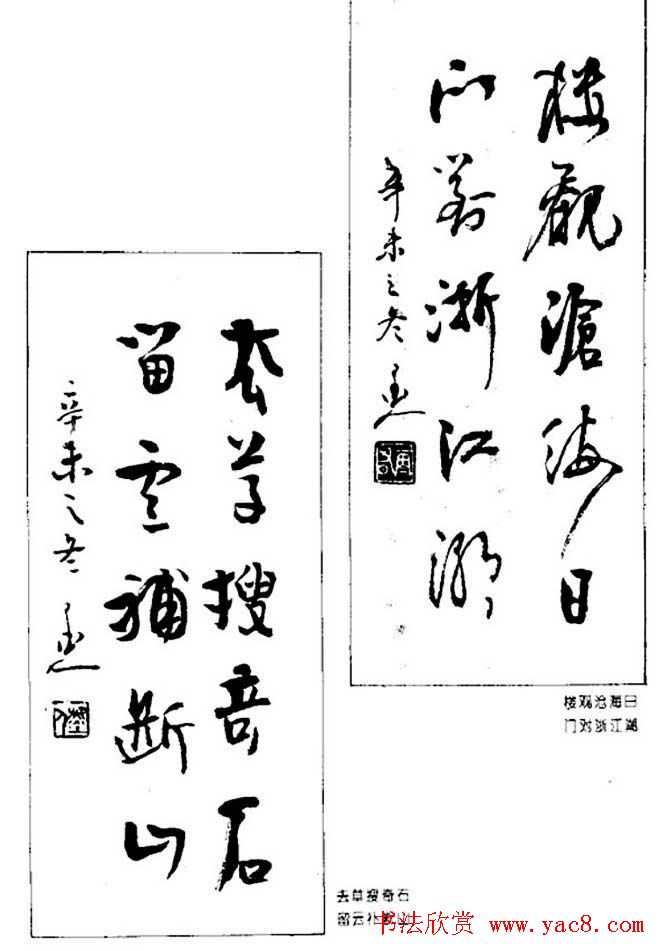 樓觀滄海日
门對浙江潮
辛未之冬
去草搜奇石
留雲補断山
辛未之冬
楼观沧海日
门对浙江潮
去草搜奇石
留云补断山
书法欣赏 www.yac8.com